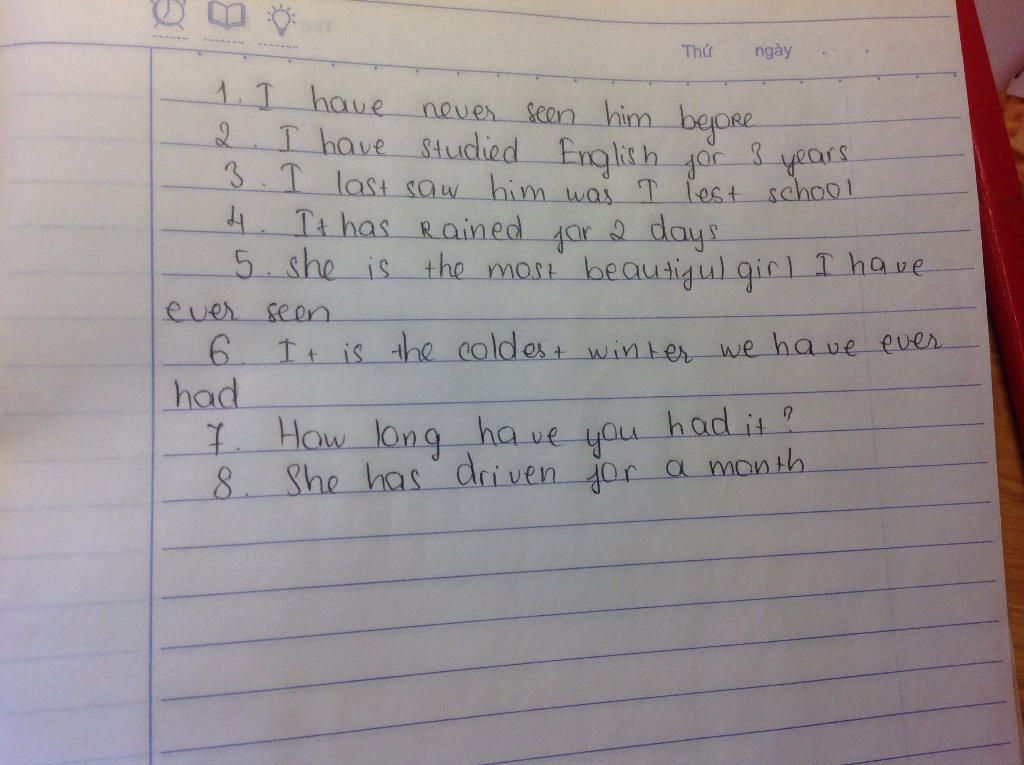 Thứ ngày
1. I have never seen him before
2. I have studied English for 3 years
3. I last saw him was I lest school
4. It has Rained for 2 days
5. she is the most beautiful girl I have
ever seen
6. It is the coldest winter we have ever
had
7. How long have you had it?
8. She has driven for a month